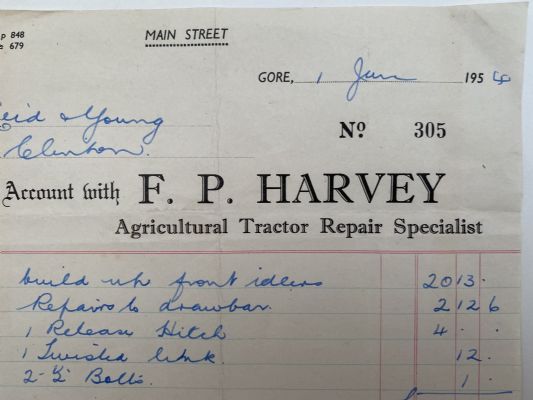 p 848
MAIN STREET
679
GORE, 1 Jun 1954
eid & Young
Clinton.
Nº 305
Account with F. P. HARVEY
Agricultural Tractor Repair Specialist
build up front idlers 20 13 ·
Repairs to drawbar. 2 12 6
1 Release Hitch 4 · ·
1 Twisted link. 12 ·
2 - ½" Bolts. 1 ·